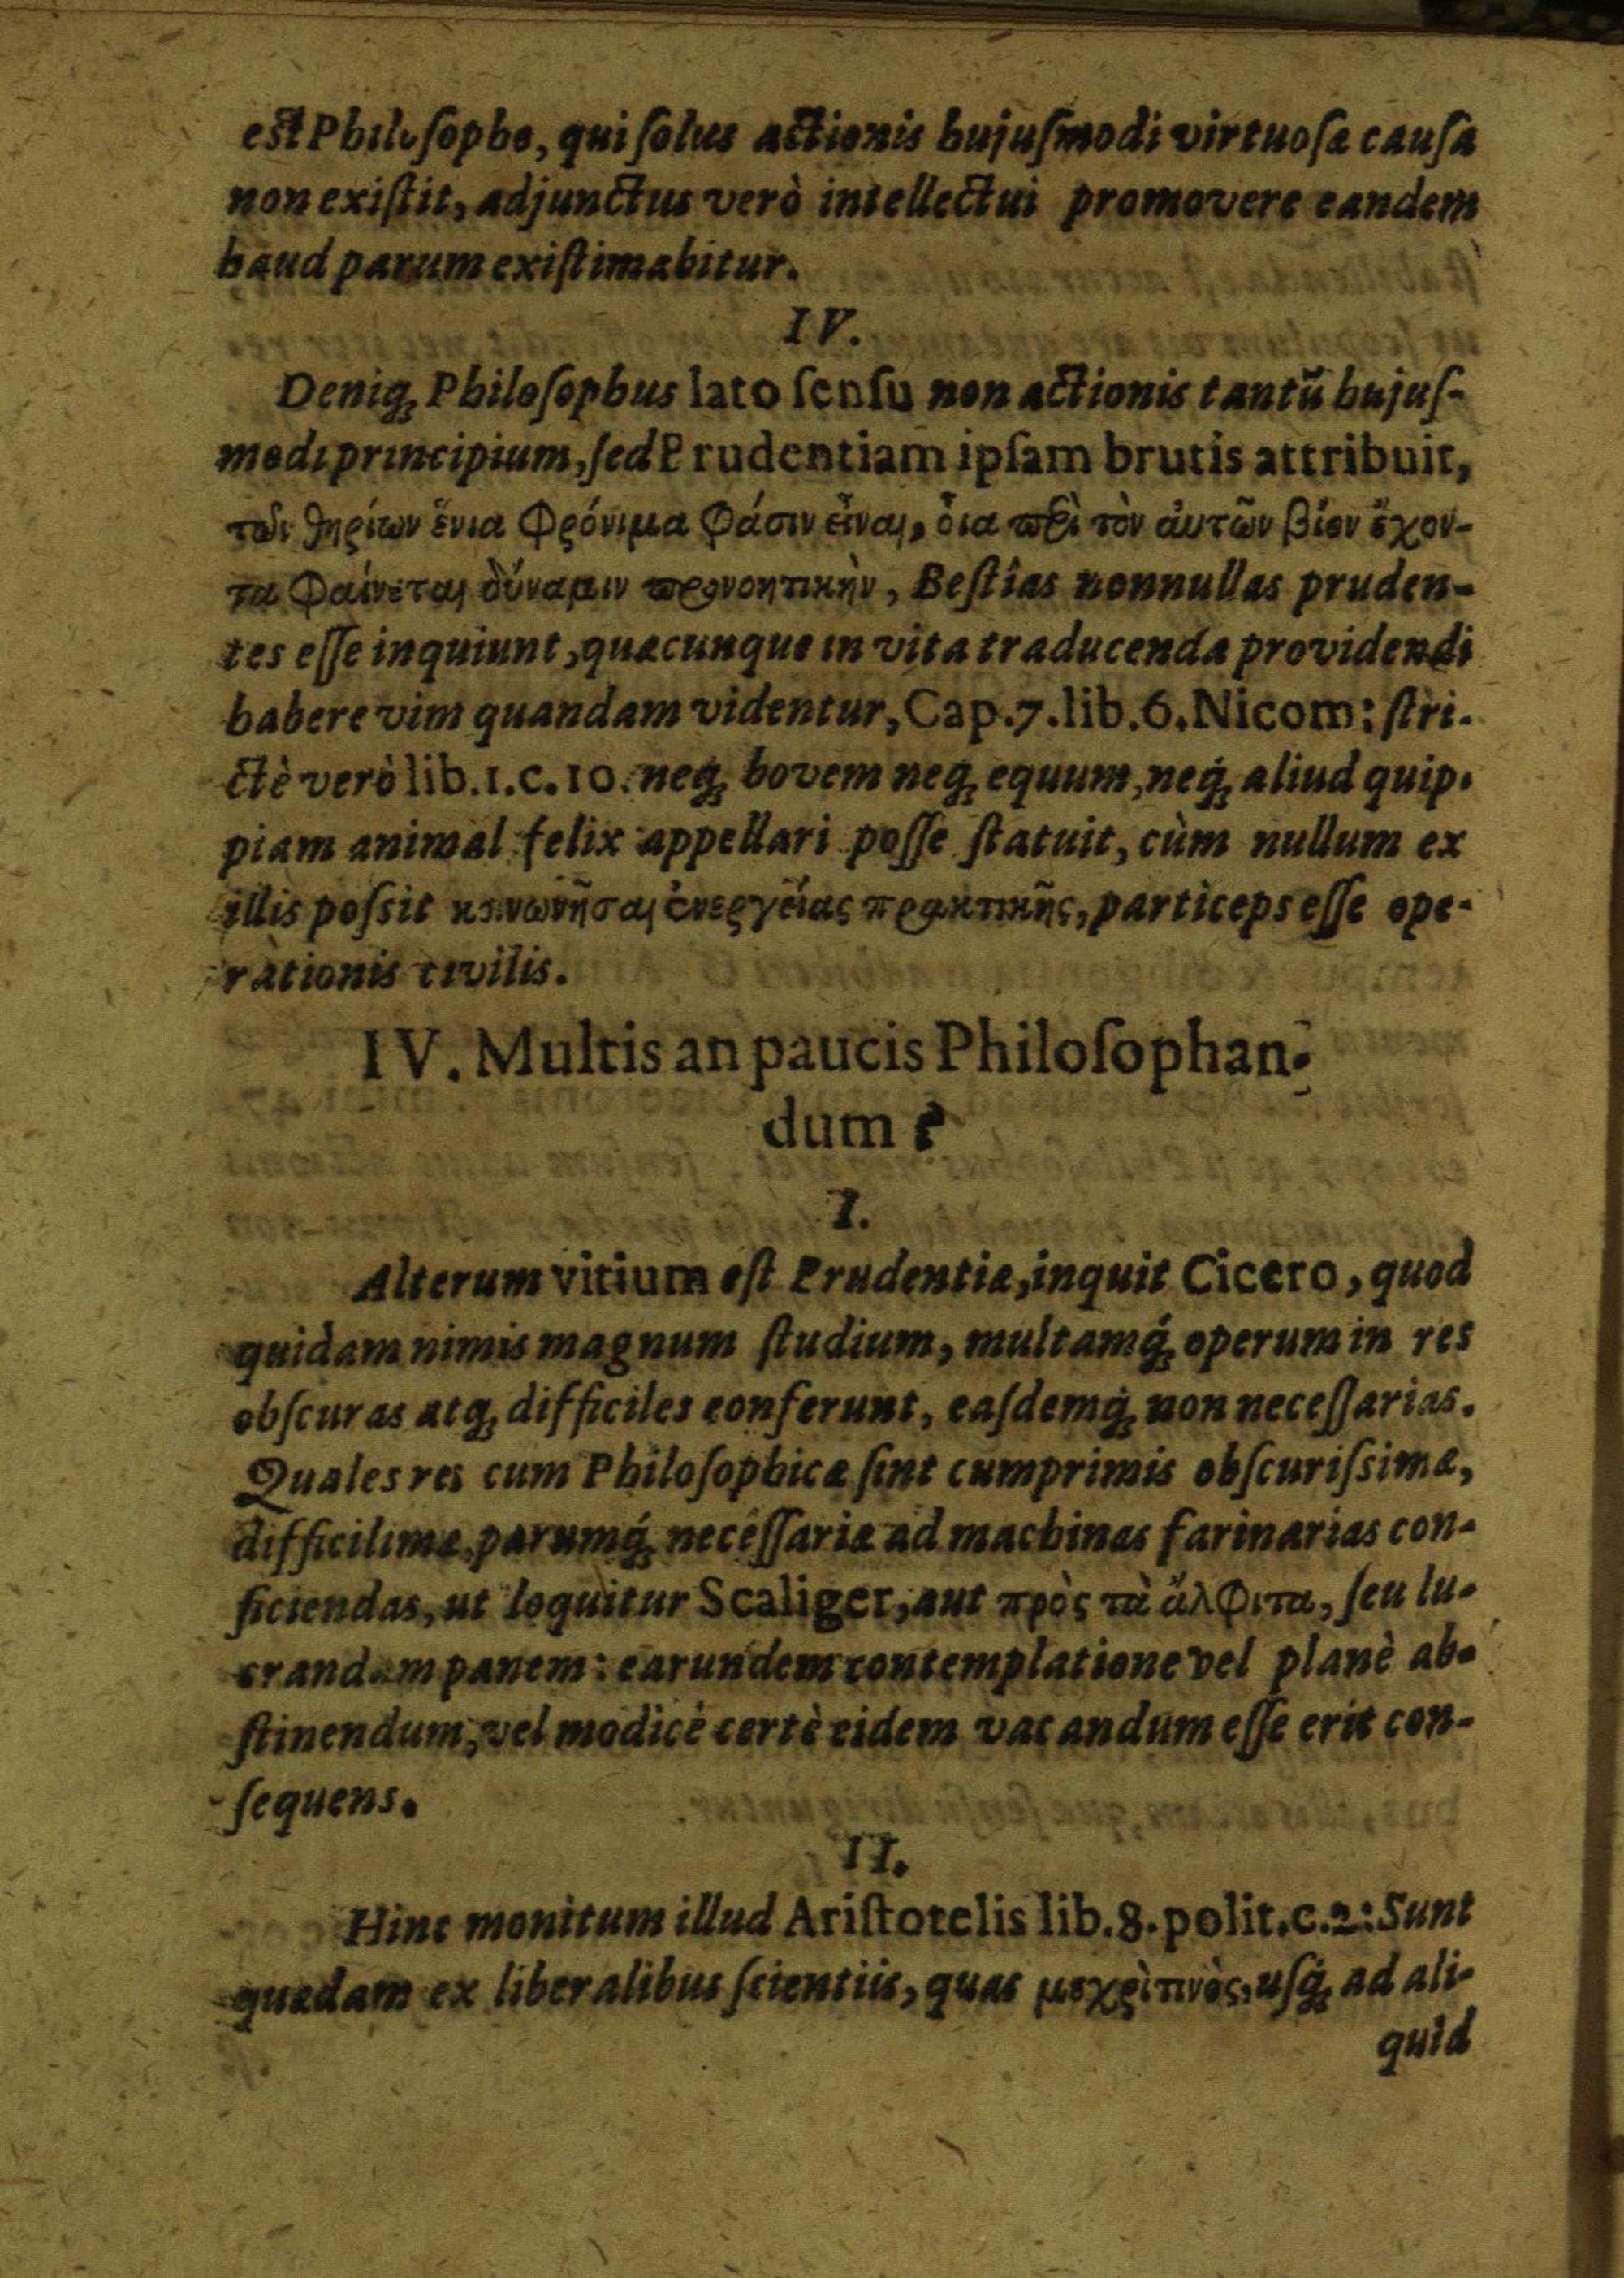 est Philosopho, qui solus actionis hujusmodi virtuosæ causa
non existit, adjunctus verò intellectui promovere eandem
haud parum existimabitur.
IV.
Deniq; Philosophus lato sensu non actionis tantũ hujus-
modi principium, sed Prudentiam ipsam brutis attribuit,
τῶν θηρίων ἔνια φρόνιμα φάσιν εἶναι, ὅσα περὶ τὸν ἀυτῶν βίον ἔχον-
τα φαίνεται δύναμιν προνοητικὴν, Bestias nonnullas pruden-
tes esse inquiunt, quæcunque in vita traducenda providendi
habere vim quandam videntur, Cap.7.lib.6.Nicom: stri-
ctè verò lib.1.c.10. neq; bovem neq; equum, neq; aliud quip-
piam animal felix appellari posse statuit, cùm nullum ex
illis possit κοινωνῆσαι ἐνεργείας πρακτικῆς, particeps esse ope-
rationis civilis.
IV. Multis an paucis Philosophan-
dum?
I.
Alterum vitium est Prudentiæ, inquit Cicero, quod
quidam nimis magnum studium, multamq́; operum in res
obscuras atq; difficiles conferunt, easdemq́; non necessarias.
Quales res cum Philosophicæ sint cumprimis obscurissimæ,
difficilimæ, parumq́; necessariæ ad machinas farinarias con-
ficiendas, ut loquitur Scaliger, aut πρὸς τὰ ἄλφιτα, seu lu-
crandum panem: earundem contemplatione vel planè ab-
stinendum, vel modicè certè eidem vacandum esse erit con-
sequens.
II.
Hinc monitum illud Aristotelis lib.8.polit.c.2: Sunt
quædam ex liberalibus scientiis, quas μεχρὶ τινὸς, usq́; ad ali-
quid